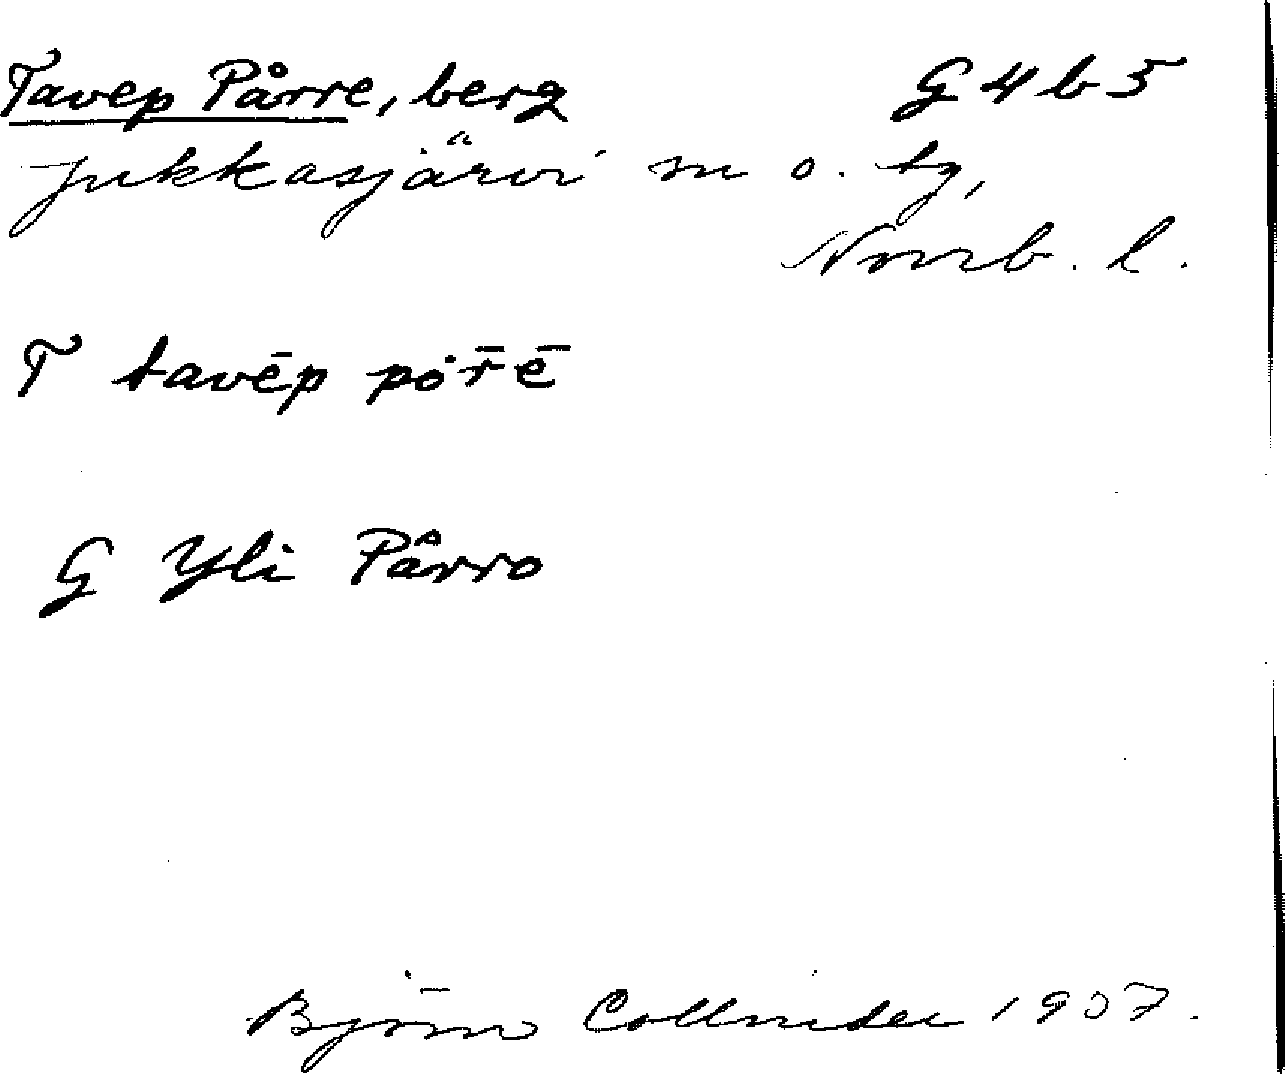 Tavep Pårre, berg G4b5
Jukkasjärvi sn o. tg,
Norrb. l.
T tavēp pȯr̄ē
G Yli Pårro
Björn Collinder 1937.